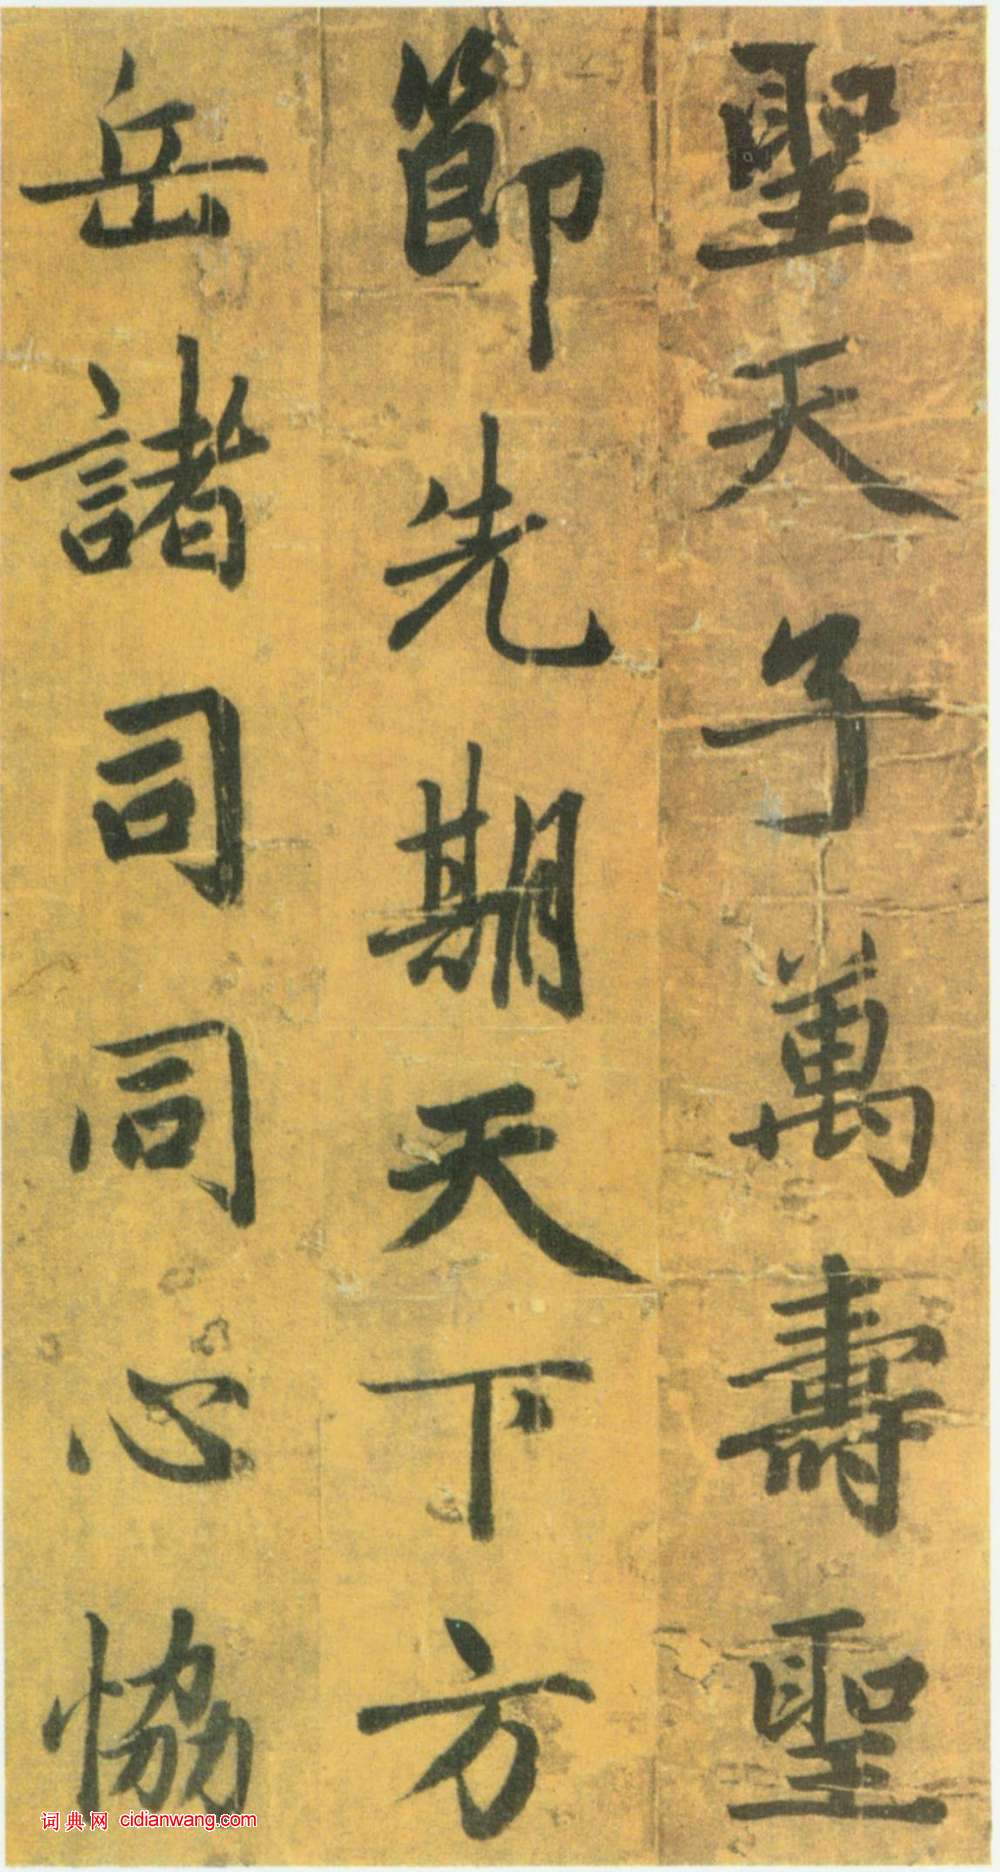 聖天子萬壽聖
節先期天下方
岳諸司同心恊
词典网 cidianwang.com